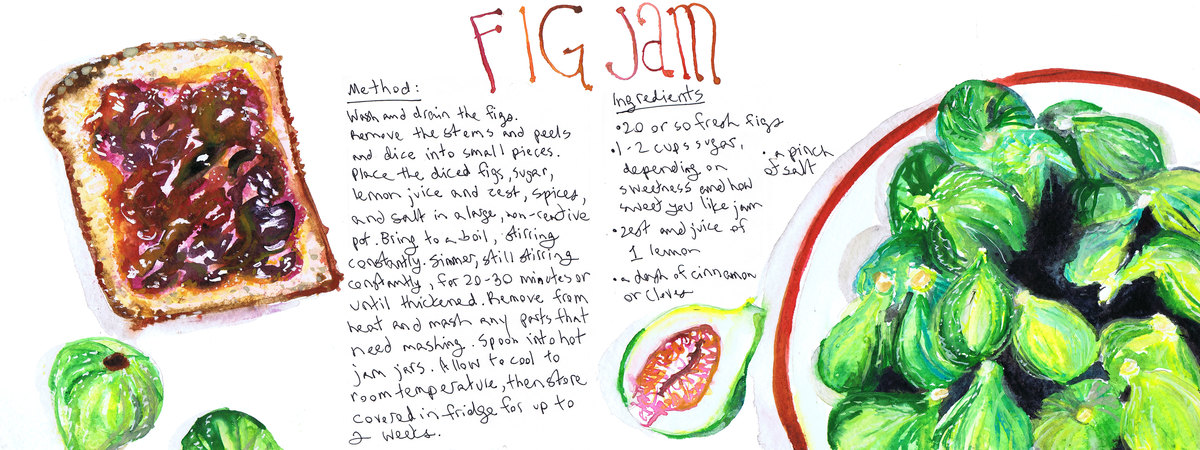 FIG Jam
Method:
Wash and drain the figs.
Remove the stems and peels
and dice into small pieces.
Place the diced figs, sugar,
lemon juice and zest, spices,
and salt in a large, non-reactive
pot. Bring to a boil, stirring
constantly. Simmer, still stirring
constantly, for 20-30 minutes or
until thickened. Remove from
heat and mash any parts that
need mashing. Spoon into hot
jam jars. Allow to cool to
room temperature, then store
covered in fridge for up to
2 weeks.
Ingredients
• 20 or so fresh figs
• 1-2 cups sugar,
depending on
sweetness and how
sweet you like jam
• zest and juice of
1 lemon
• a dash of cinnamon
or cloves
• a pinch
of salt